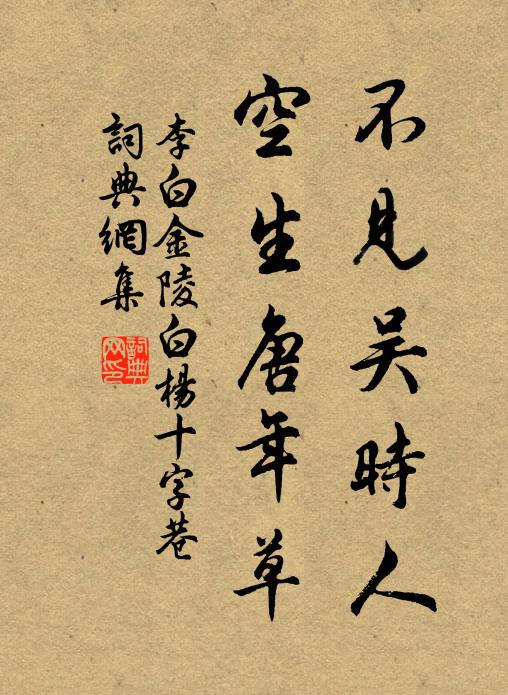 不見吳時人
空生唐年草
李白金陵白楊十字巷
詞典網集
詞典
网印